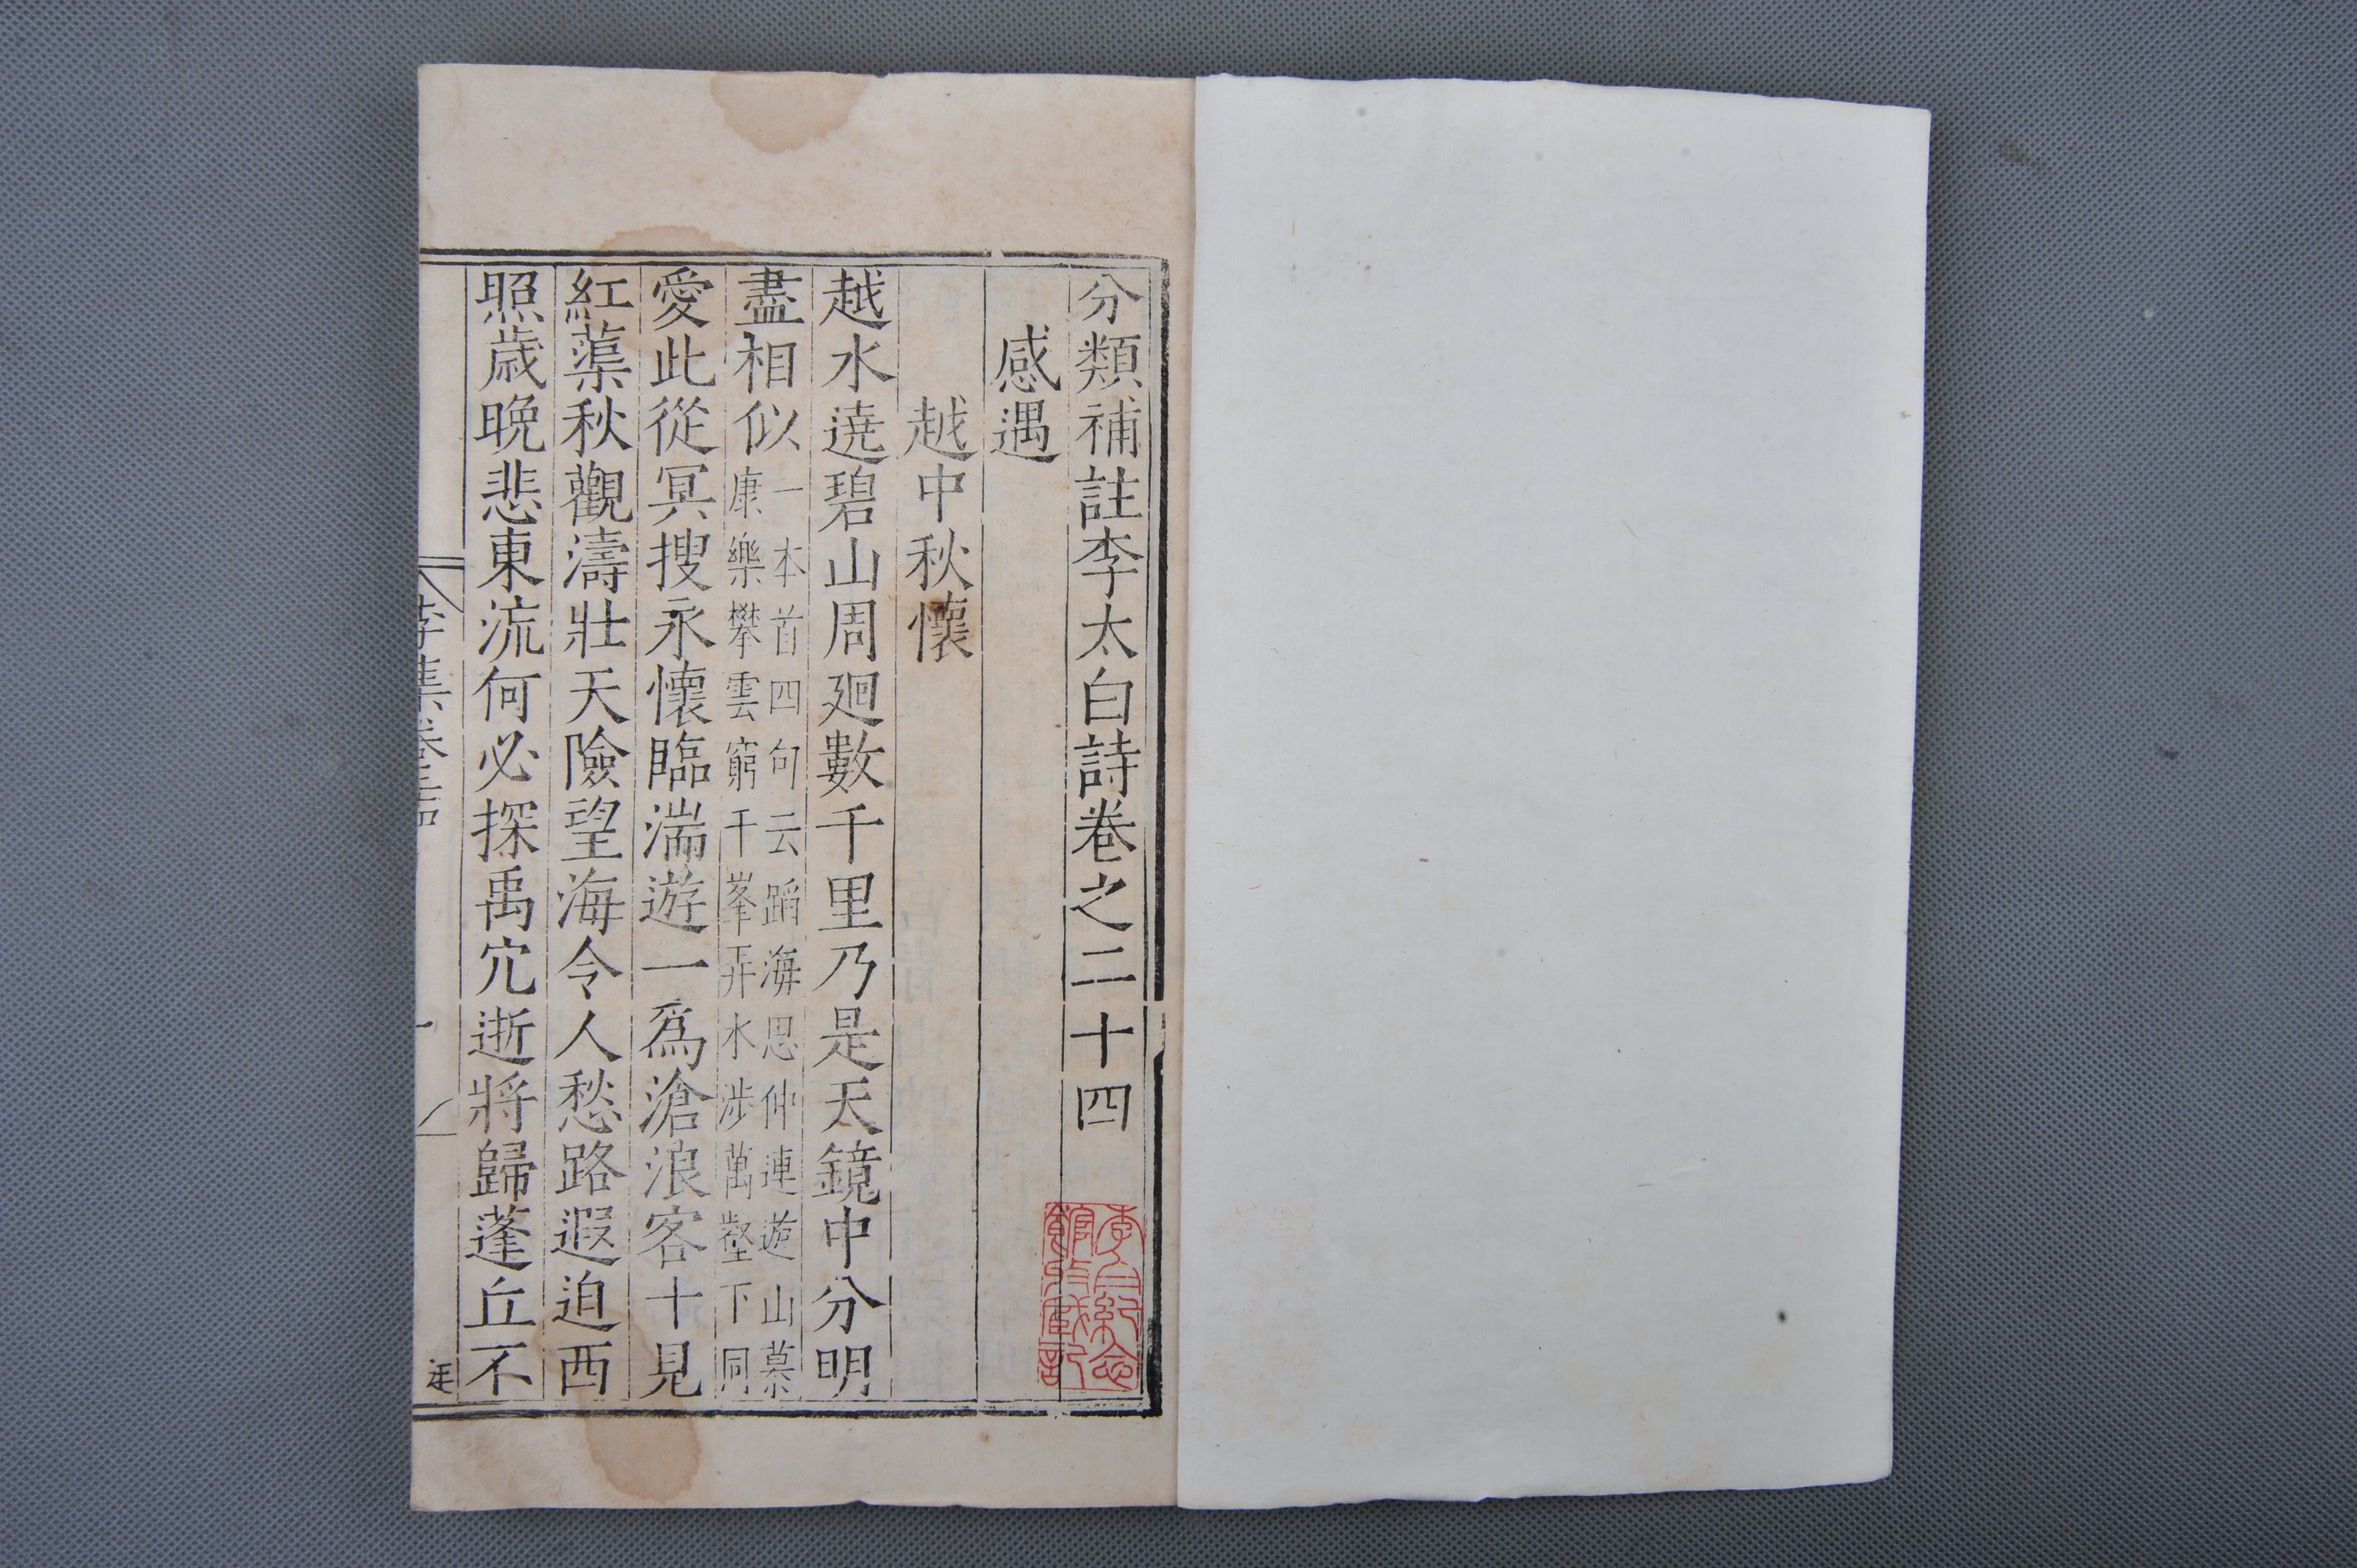 分類補註李太白詩卷之二十四
感遇
越中秋懷
越水遶碧山周廻數千里乃是天鏡中分明
盡相似
一本首四句云蹈海思仲連遊山慕
康樂攀雲窮千峯弄水涉萬壑下同
愛此從冥搜永懷臨湍遊一爲滄浪客十見
紅蕖秋觀濤壯天險望海令人愁路遐迫西
照歲晚悲東流何必探禹穴逝將歸蓬丘不
李集卷二十四
李白紀念
館收藏記